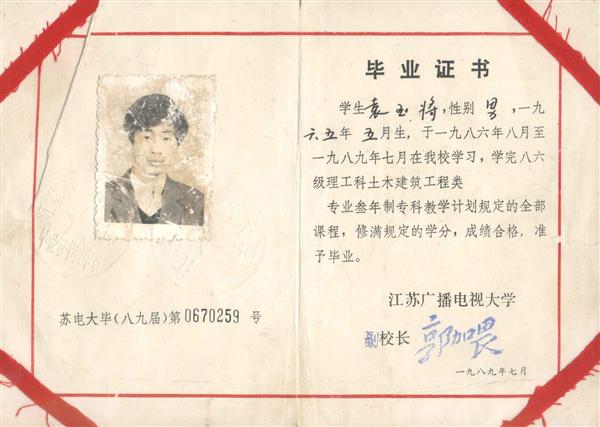 苏电大毕(八九届)第0670259 号
毕业证书
学生袁玉将,性别 男,一九
六五年 五月生,于一九八六年八月至
一九八九年七月在我校学习,学完八六
级理工科土木建筑工程类
专业叁年制专科教学计划规定的全部
课程,修满规定的学分,成绩合格,准
予毕业。
江苏广播电视大学
副校长 郭加
一九八九年七月